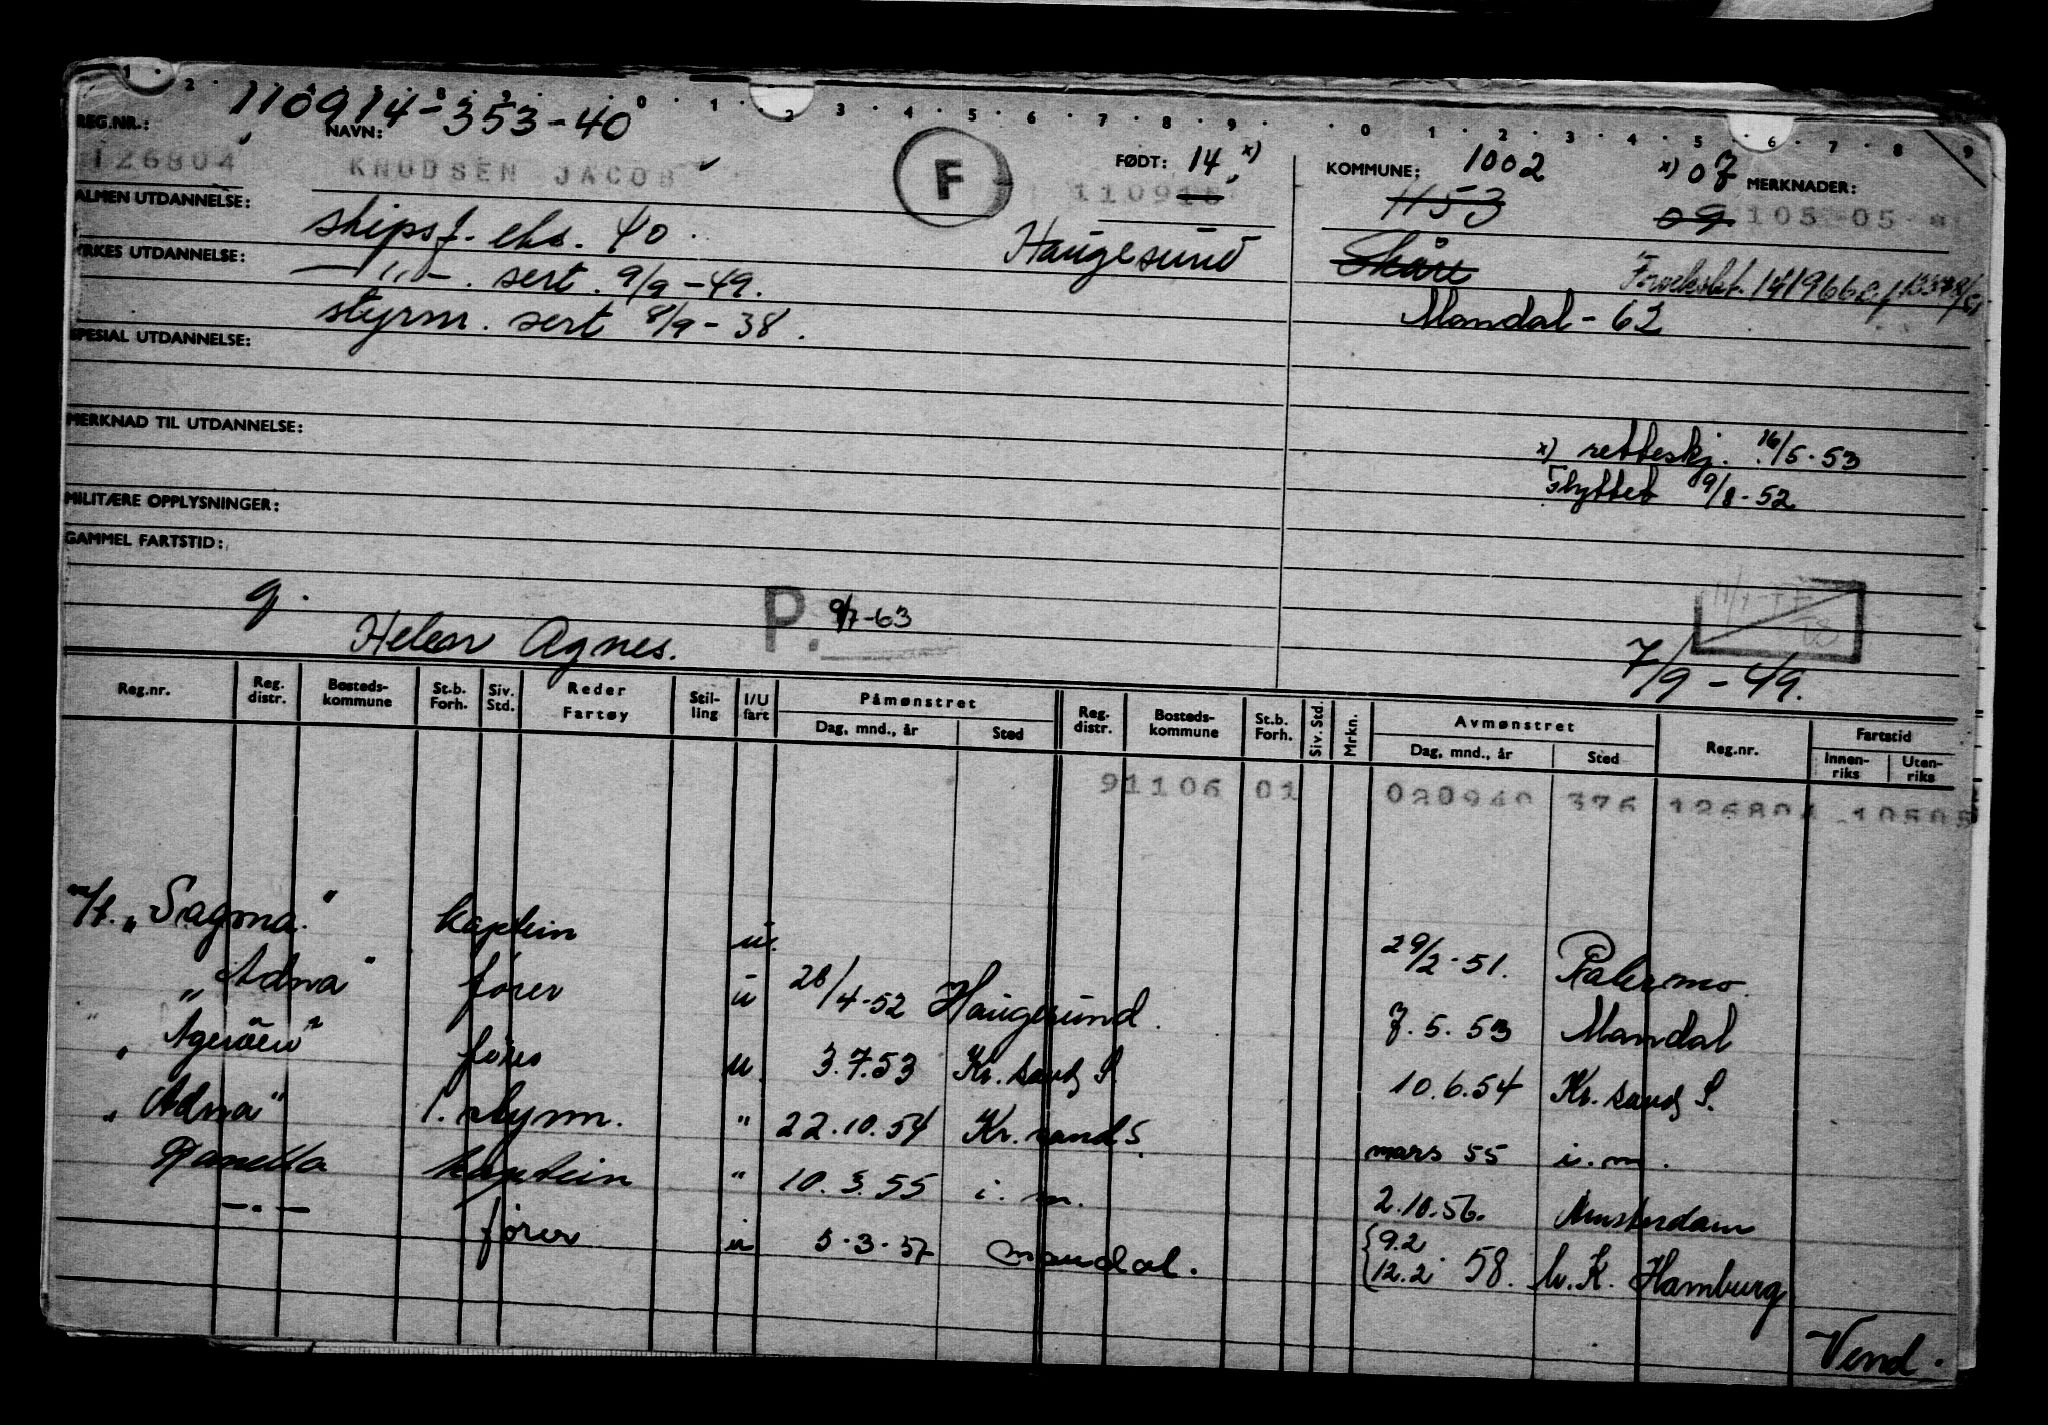 110914-353-40
REG.NR.: NAVN: FØDT: 14 x) KOMMUNE: 1002 x) 07 MERKNADER:
126804 KNUDSEN JACOB F 110915 1153 09 105 05
ALMEN UTDANNELSE: skipsf. eks. 40. Haugesund Skåre
YRKES UTDANNELSE: — " — . sert. 9/9-49. Mandal - 62
styrm. sert 8/9-38.
SPESIAL UTDANNELSE:
MERKNAD TIL UTDANNELSE:
x) retteskj. 16/5-53
Flyttet 9/8-52
MILITÆRE OPPLYSNINGER:
GAMMEL FARTSTID:
g. P. 9/7-63
Helen Agnes. 7/9-49.
Reg.nr. Reg. distr. Bosteds-kommune St.b. Forh. Siv. Std. Reder Fartøy Stil-ling I/U fart Påmønstret Dag, mnd., år Sted Reg. distr. Bosteds-kommune St.b. Forh. Siv. Std. Mrkn. Avmønstret Dag, mnd., år Sted Reg.nr. Fartstid Innen-riks Uten-riks
91106 01 020940 376 126804 10505
m/t. "Sagona" kaptein u. 29/2-51. Palermo.
" "Adna" fører u 28/4-52 Haugesund. 7.5.53 Mandal
" fører u. 3.7.53 Kr.sand S. 10.6.54 Kr.sand S.
" Adna" 1. styrm. " 22.10.54 Kr.sand S. mars 55 i.m.
Ranella kaptein " 10.3.55 i.m. 2.10.56. Amsterdam
—"— fører u 5.3.57 Mandal. {9.2 12.2 58. Hamburg
Vend.